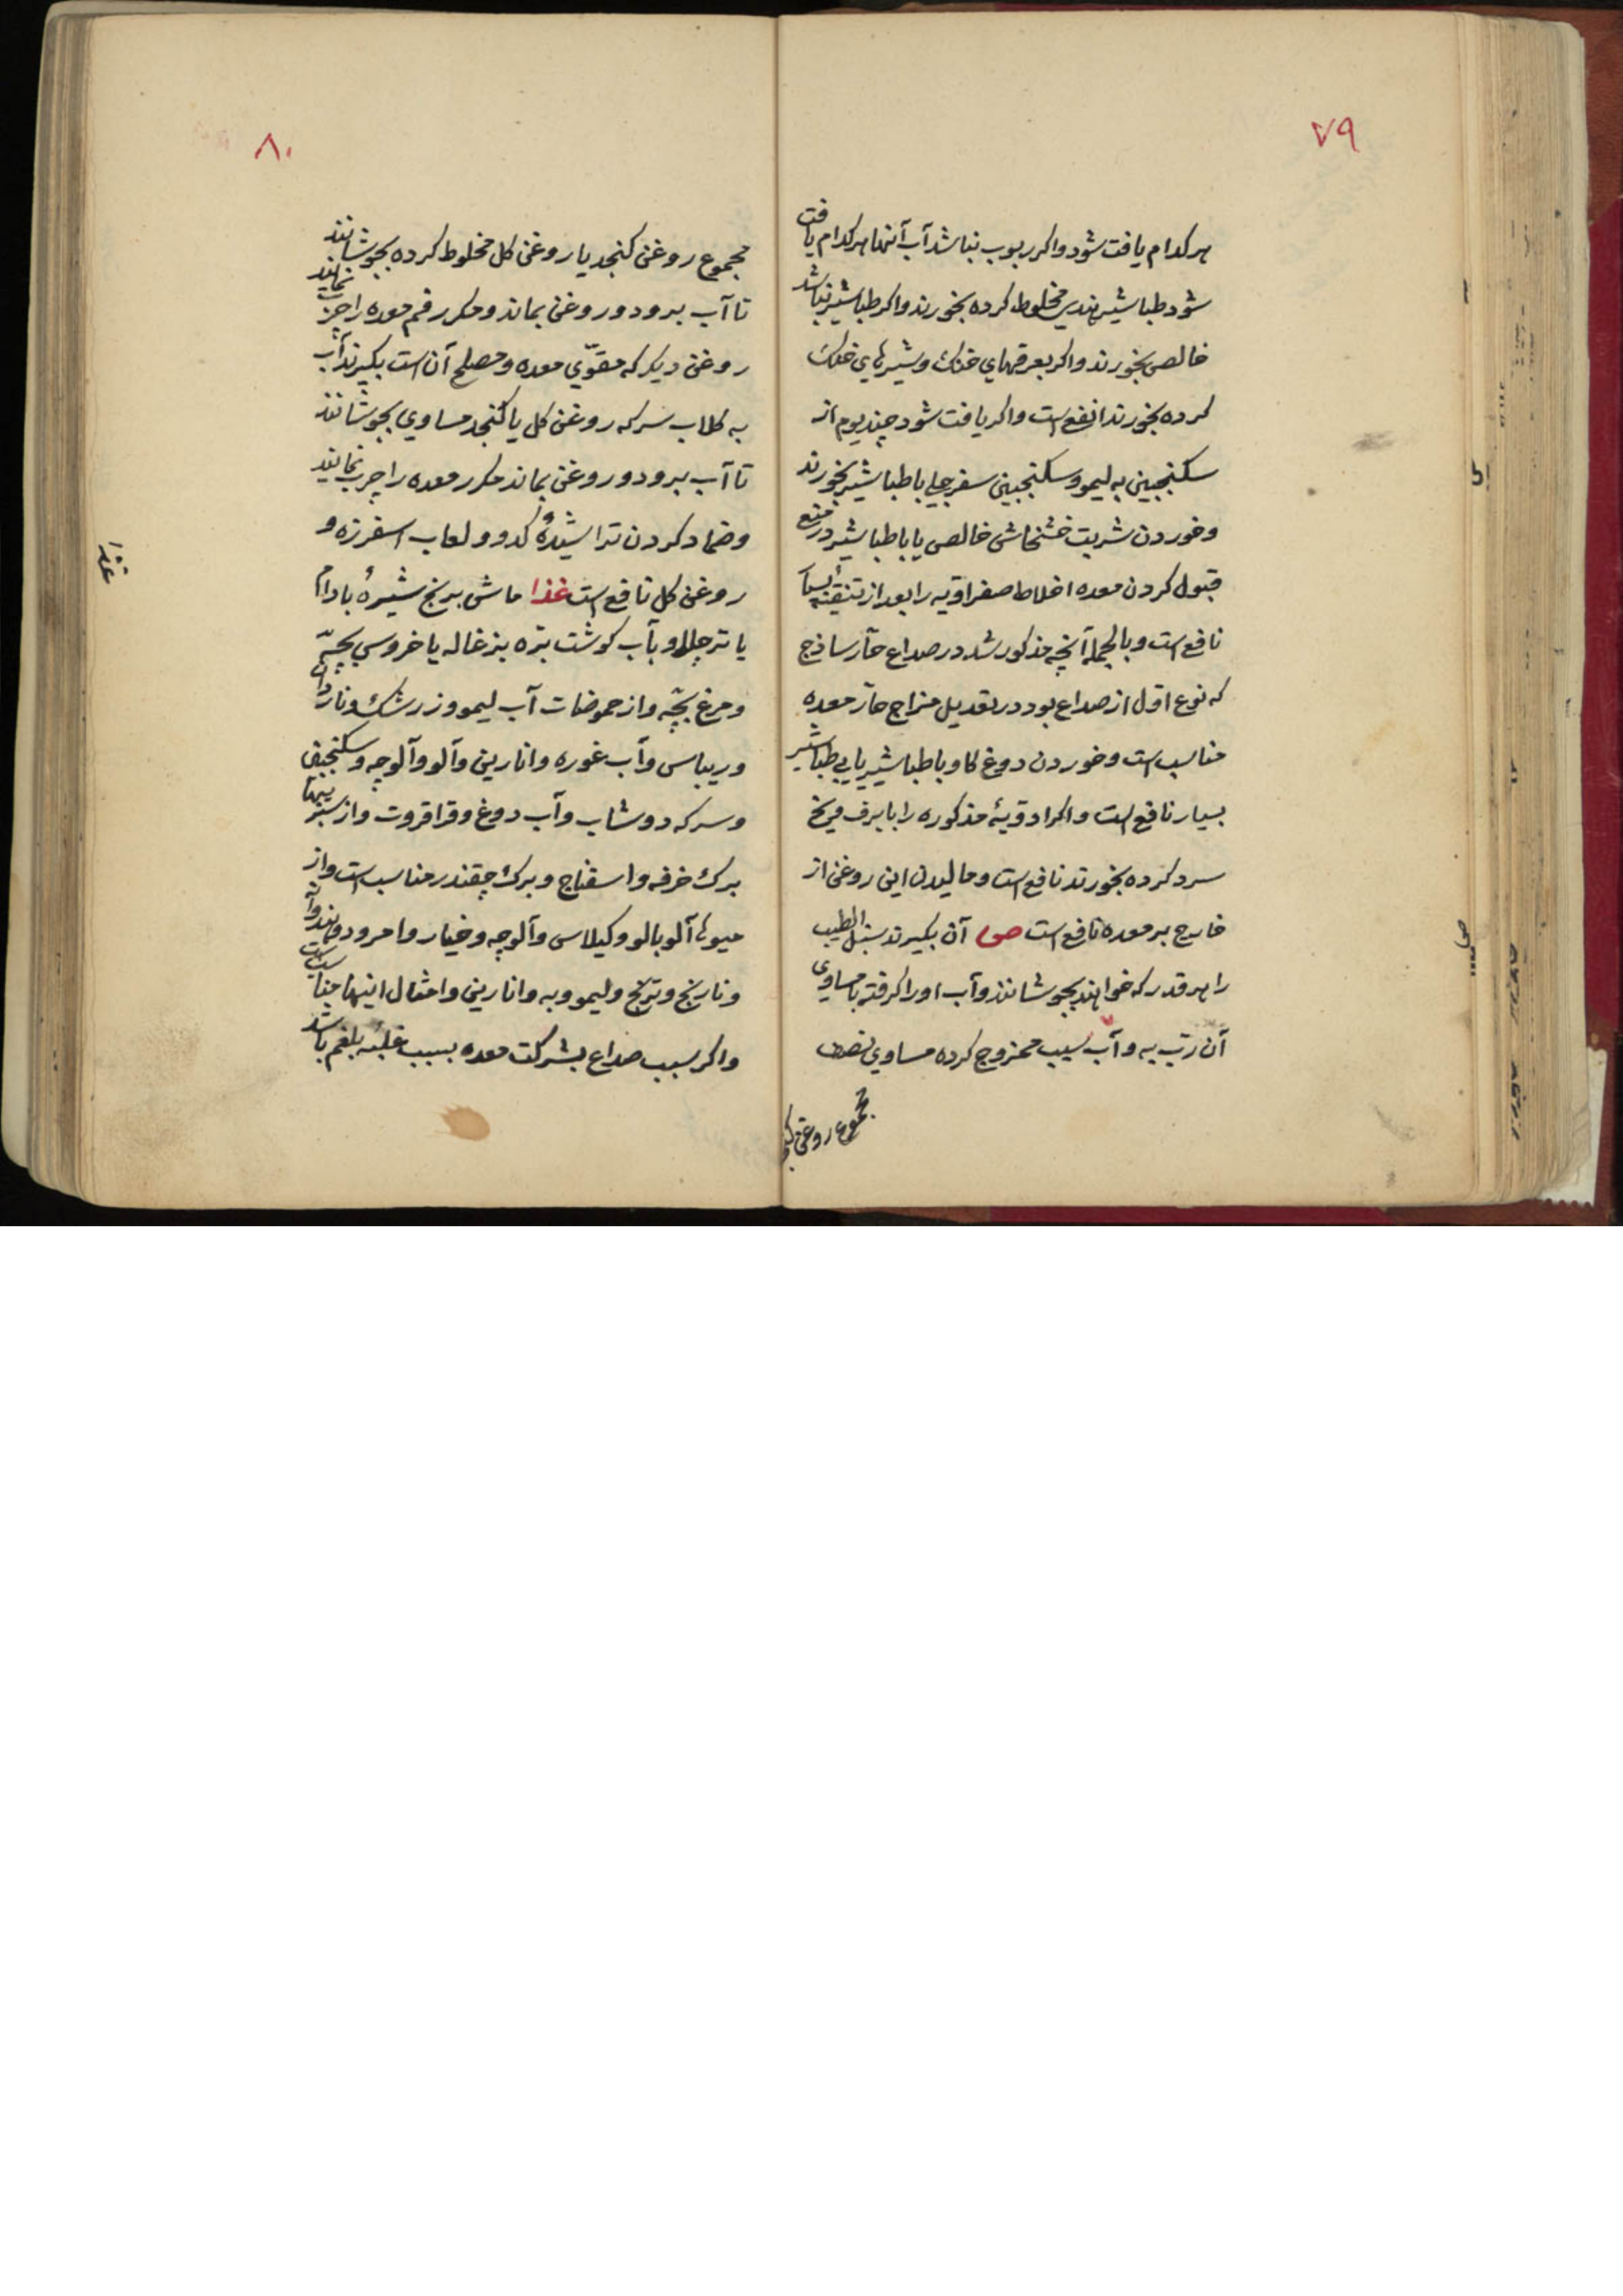 ۷۹
هر کدام یافت شود واکر ربوب نباشد آب آنها هر کدام یافت
شود طباشیر هندي مخلوط کرده بخورند واکر طباشیر نباشد
خالص بخورند واکر بعرقهاي خنك وشیرهاي خنك
کرده بخورند انفع است واکر یافت شود چند یوم از
سکنجبین به لیمو وسکنجبین سفرجلي با طباشیر بخورند
وخوردن شربت خشخاش خالص یا با طباشیر در منع
قبول کردن معده اخلاط صفراویه را بعد از تنقیه بسیار
نافع است وبالجمله آنچه مذکور شد در صداع حارّ ساذج
که نوع اوّل از صداع بود در تعدیل مزاج حارّ معده
مناسب است وخوردن دوغ کاو با طباشیر یا بي طباشیر
بسیار نافع است واکر ادویهٔ مذکوره را با برف ویخ
سرد کرده بخورند نافع است ومالیدن این روغن از
خارج بر معده نافع است ص آن بکیرند سنبل الطیب
را هر قدر که خواهند بجوشانند وآب او را کرفته با مساوي
آن ربّ به وآب سیب ممزوج کرده مساوي نصف
مجموع روغن کنجد
۸۰
مجموع روغن کنجد یا روغن کل مخلوط کرده بجوشانند
تا آب برود وروغن بماند ومکرر فم معده را چرب نمایند
روغن دیکر که مقوّي معده ومصلح آن است بکیرند آب
به کلاب سرکه روغن کل یا کنجد مساوي بجوشانند
تا آب برود وروغن بماند مکرر معده را چرب نمایند
وضماد کردن تراشیدهٔ کدو ولعاب اسفرزه و
روغن کل نافع است غذا ماش برنج شیرهٔ بادام
یا تر چلاو بآب کوشت برّه بزغاله یا خروس بچّه
ومرغ بچّه واز حموضات آب لیمو وزرشك وناردان
وریباس وآب غوره وانارین وآلو وآلوچه وسکنجبین
وسرکه دوشاب وآب دوغ وقراقروت واز سبزیها
برك خرفه واسفناج وبرك چقندر مناسب است واز
میوها آلوبالو وکیلاس وآلوچه وخیار وامرود وهندوانه
ونارنج وترنج ولیمو وبه وانارین وامثال اینها مناسب است
واکر سبب صداع بشرکت معده بسبب غلبهٔ بلغم باشد
غذا